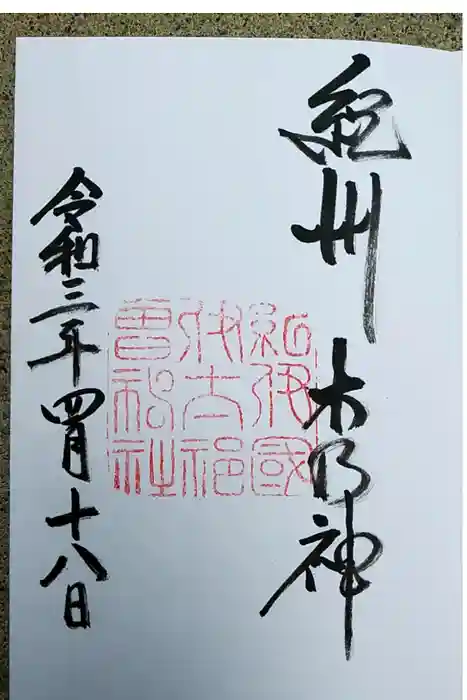 紀州 木乃神
紀伊國
伊太祁
曾神社
令和三年四月十八日